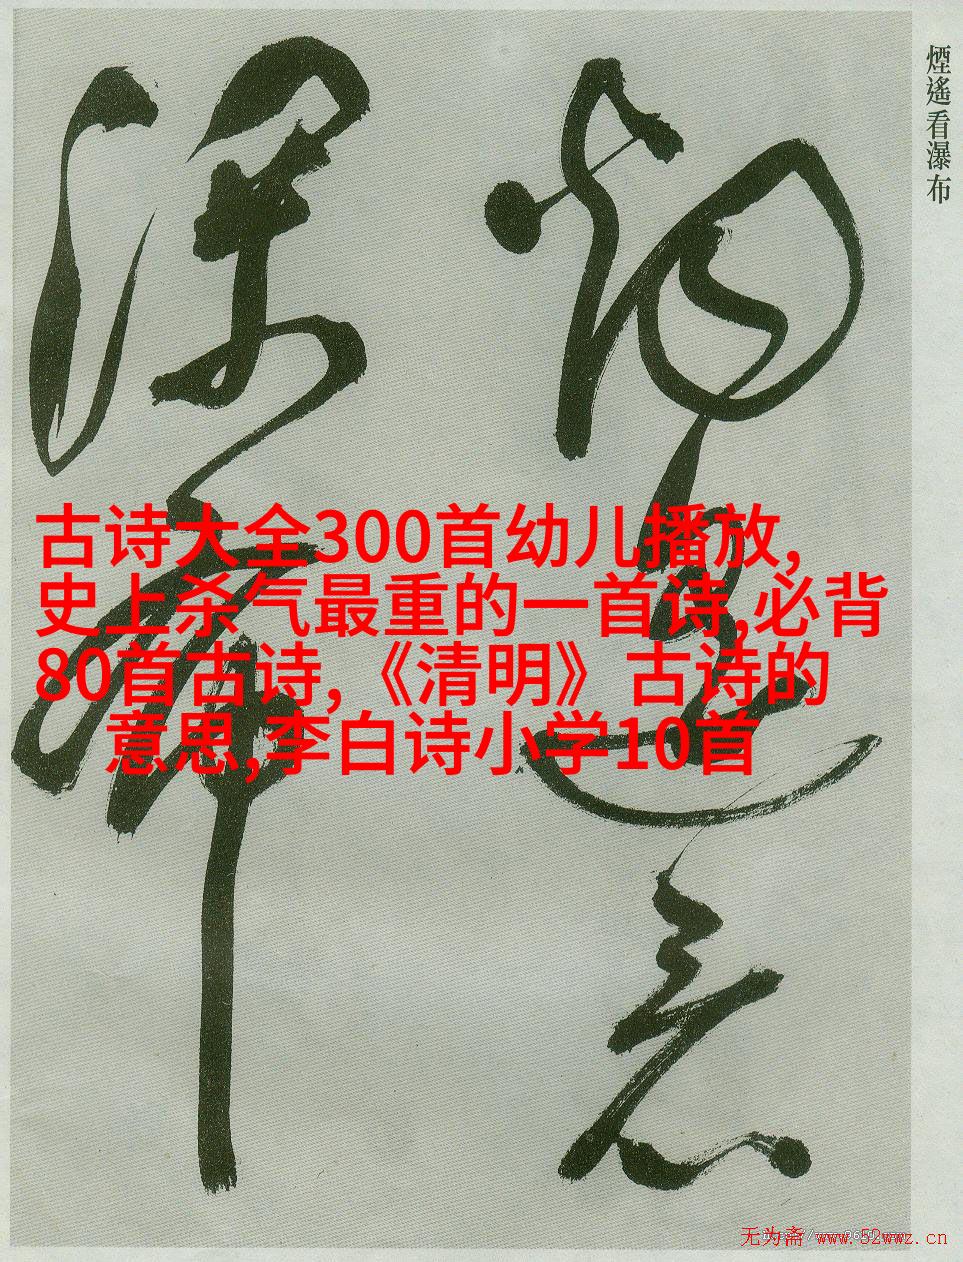 煙遙看瀑布
煙遙看
瀑布
古诗大全300首幼儿播放,
史上杀气最重的一首诗,必背
80首古诗,《清明》古诗的
意思,李白诗小学10首
无为斋 www.52wwz.cn